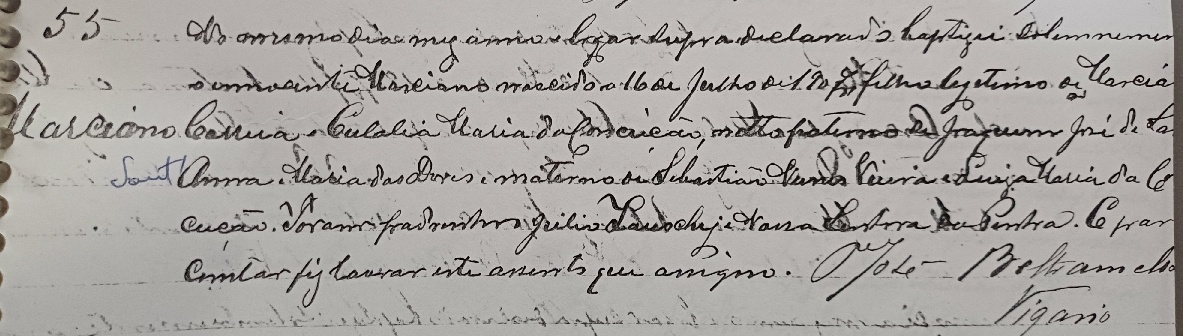 55 No mesmo dia mez anno e logar supra declarados baptizei solemnemen
o innocente Marciano nascido a 16 de Julho de 1907 filho legitimo de Marcia
Marciano Correia e Eulalia Maria da Conceição, netto paterno de Joaquim José de Sa
Sant'Anna e Maria das Dores e materno de Sebastião Vieira e Luiza Maria da Co
ceição. Foram padrinhos Julio e Nossa Senhora da Penha. E para
constar fiz lavrar este assento que assigno. Pe José Beltramello
Vigario